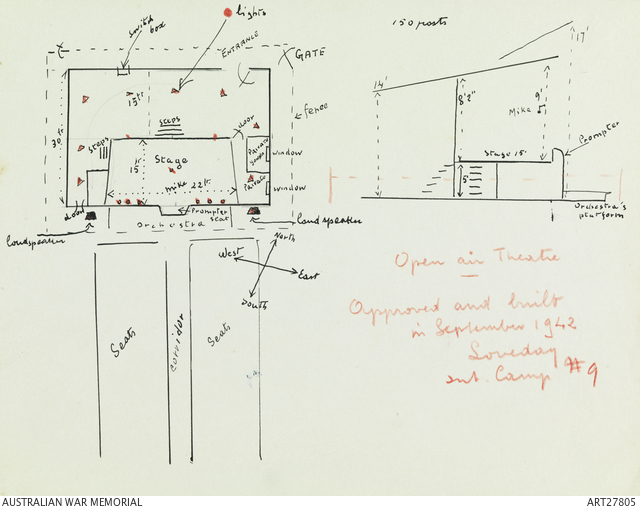 lights
150 posts
switch box
ENTRANCE
GATE
17'
14'
15 ft
30 ft
8'2"
9'
Mike
fence
steps
door
steps
15 ft
Stage
Private
window
Stage 15'
Prompter
mike 22 ft
Private
window
5'
door
Prompter seat
Orchestra
loudspeaker
loudspeaker
Orchestra's platform
North
West
East
South
Seats
corridor
Seats
Open air Theatre
Approved and built
in September 1942
Loveday
Int. Camp #9
AUSTRALIAN WAR MEMORIAL
ART27805